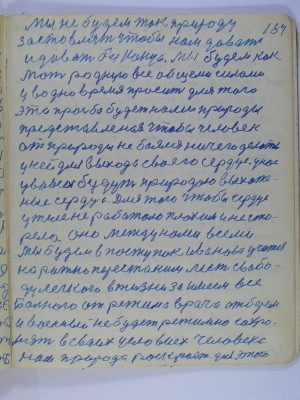 184
Мы не будем так природу
заставлять чтобы нам давать
и давать без конца. Мы будем как
мать родную все общими силами
у водно время просить для того
эта прозба будет нами природы
представленая чтобы человек
от природы не боялся ничего делать
у ней для выхода своего сердце. у нас
у всех будут природою выхожа-
ные сердца. Для того чтобы сердце
у тибе не работало плохим и не ста-
рело оно между нами всеми
Мы будем в поступок Иванова учится
на
мы перестаним лист свабо-
ду легкого в жизни займем все
Больного от режима врача отберем
и военный не будет режимно сохра-
нять в своих условиях человека
нам природа раскроет для этого